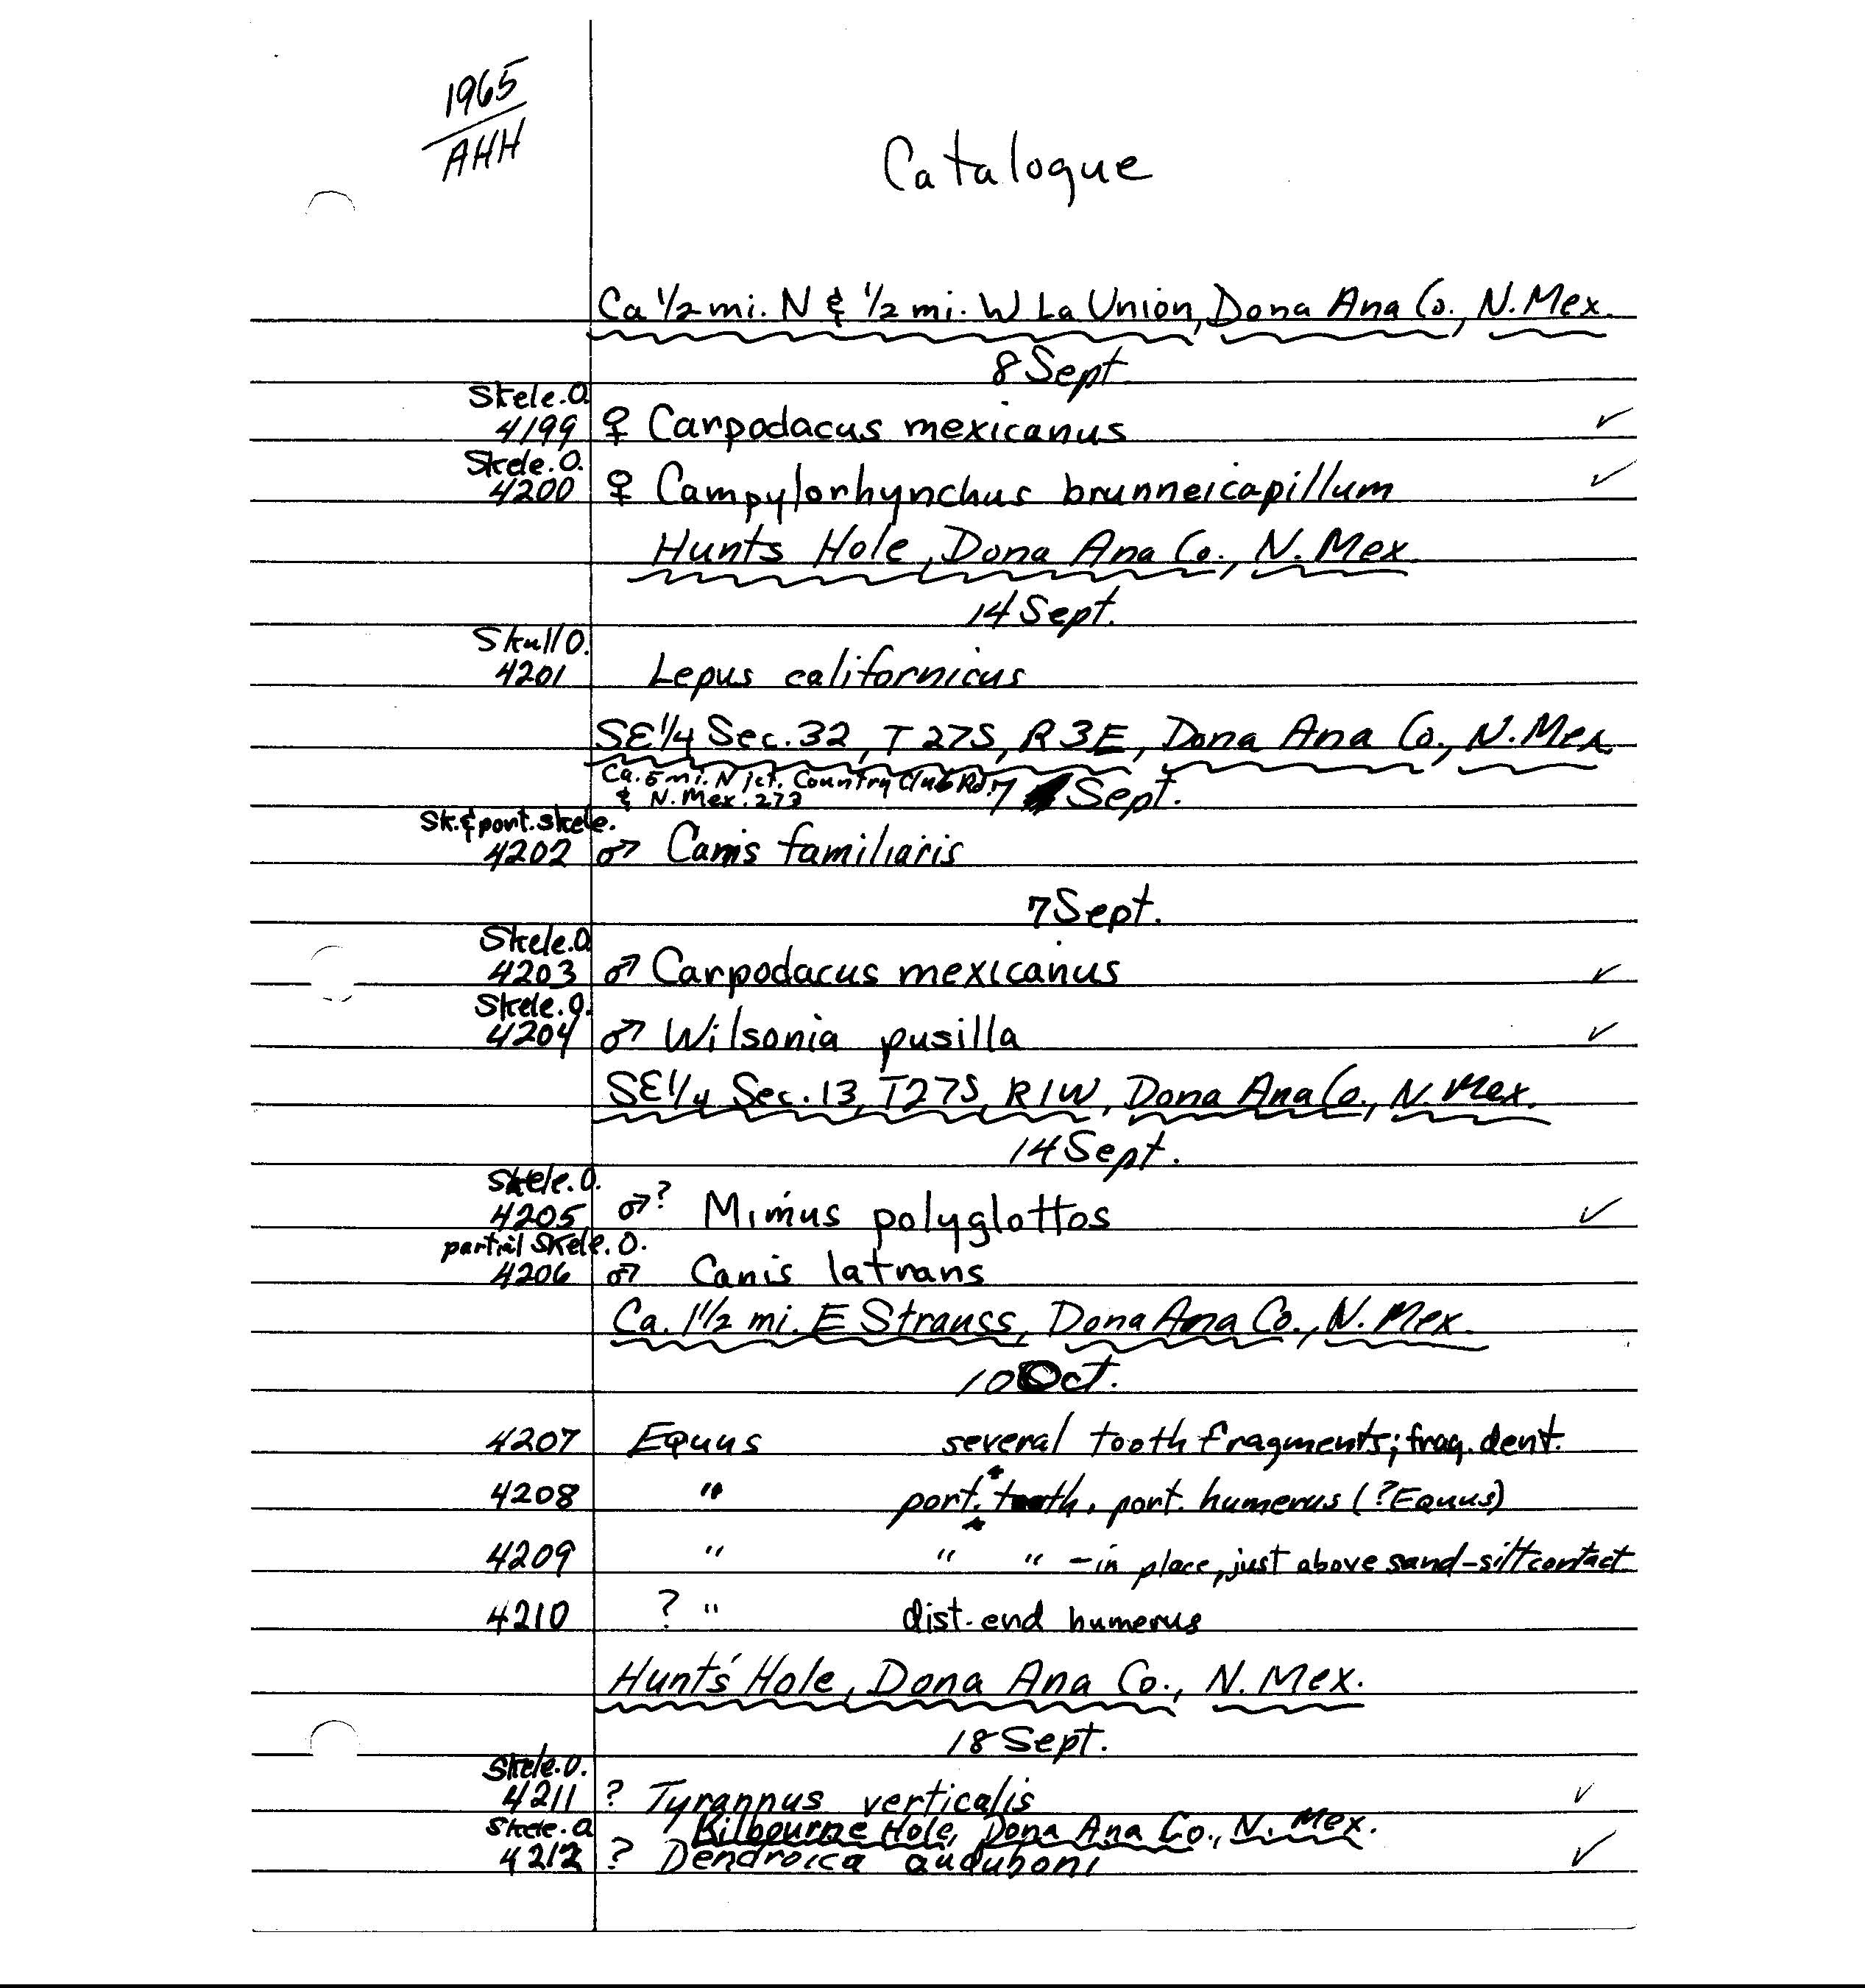 1965
AHH
Catalogue
Ca 1/2 mi. N & 1/2 mi. W La Union, Dona Ana Co., N. Mex.
8 Sept.
Skele. O.
4199 ♀ Carpodacus mexicanus ✓
Skele. O.
4200 ♀ Campylorhynchus brunneicapillum ✓
Hunts Hole, Dona Ana Co., N. Mex.
14 Sept.
Skull O.
4201 Lepus californicus
SE 1/4 Sec. 32, T 27S, R 3E, Dona Ana Co., N. Mex.
Ca. 5 mi. N jct. Country Club Rd.
& N. Mex. 273
7 Sept.
Sk. & port. skele.
4202 ♂ Canis familiaris
7 Sept.
Skele. O.
4203 ♂ Carpodacus mexicanus ✓
Skele. O.
4204 ♂ Wilsonia pusilla ✓
SE 1/4 Sec. 13, T27S, R1W, Dona Ana Co., N. Mex.
14 Sept.
Skele. O.
4205 ♂? Mimus polyglottos ✓
partial Skele. O.
4206 ♂ Canis latrans
Ca. 1 1/2 mi. E Strauss, Dona Ana Co., N. Mex.
10 Oct.
4207 Equus several tooth fragments; frag. dent.
4208 " port. tooth, port. humerus (?Equus)
4209 " " " - in place, just above sand-silt contact
4210 ? " dist. end humerus
Hunt's Hole, Dona Ana Co., N. Mex.
18 Sept.
Skele. O.
4211 ? Tyrannus verticalis ✓
Kilbourne Hole, Dona Ana Co., N. Mex.
Skele. O
4212 ? Dendroica auduboni ✓